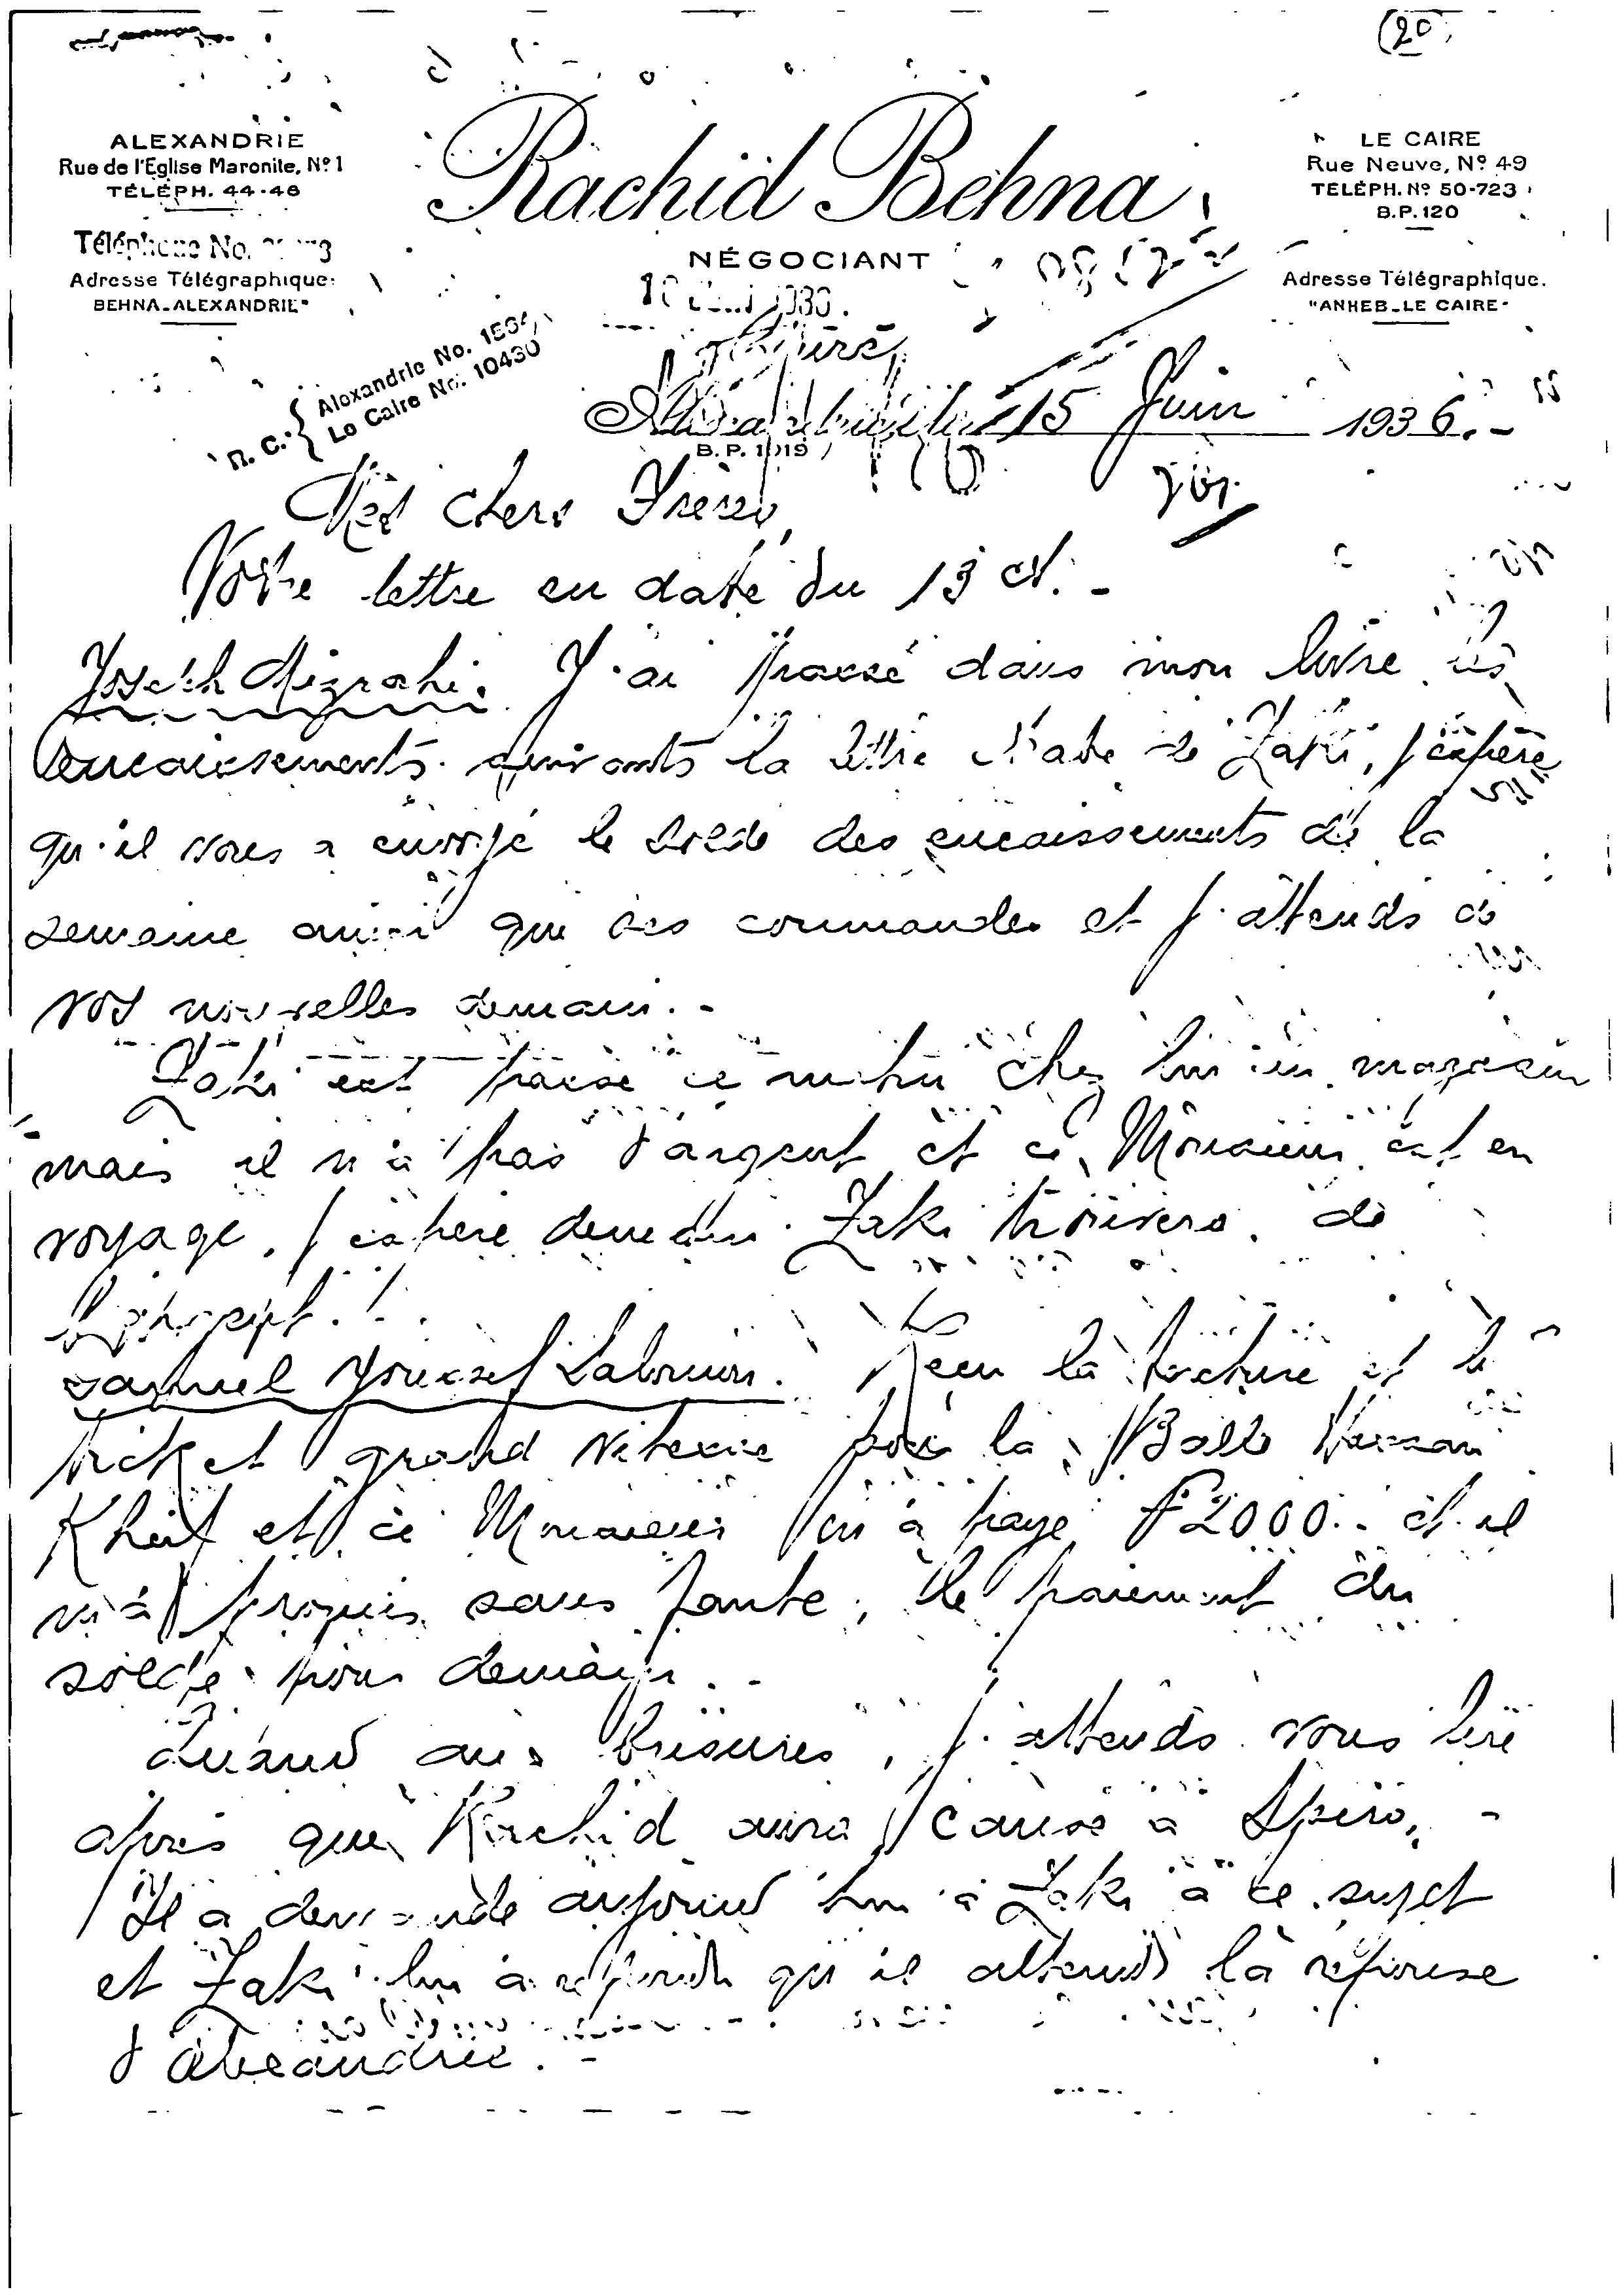 (20)
ALEXANDRIE
Rue de l'Eglise Maronite, Nº 1
TÉLÉPH. 44-46
Téléphone No.
Adresse Télégraphique:
BEHNA-ALEXANDRIE"
Rachid Behna
NÉGOCIANT
LE CAIRE
Rue Neuve, Nº 49
TELÉPH. Nº 50-723
B.P. 120
Adresse Télégraphique.
"ANHEB-LE CAIRE"
R. C. Alexandrie No.
Le Caire No. 10430
15 Juin 1936.-
B.P. 1019
Mes chers Frères,
Votre lettre en date du 13 ct. -
Joseph Mizrahi. J'ai passé dans mon livre les
encaissements suivants la lettre Arabe de Zaki, j'espère
qu'il vous a envoyé le solde des encaissements de la
semaine ainsi que ses commandes et j'attends de
vos nouvelles demain. -
Zaki est passé ce matin chez lui au magasin
mais il n'a pas d'argent et ce Monsieur est en
voyage, j'espère demain Zaki trouvera de
l'argent.
Samuel Youssef Reçu la facture et le
ticket grand vitesse pour la Balle Hassan
Kheit et ce Monsieur m'a payé F 2000.- et il
m'a promis sans faute, le paiement du
solde pour demain. -
Quand aux brisures, j'attends vous lire
après que Rachid aura causé à Spiro. -
Il a demandé aujourd'hui à Zaki à ce sujet
et Zaki lui a répondu qu'il attend la réponse
d'Alexandrie. -